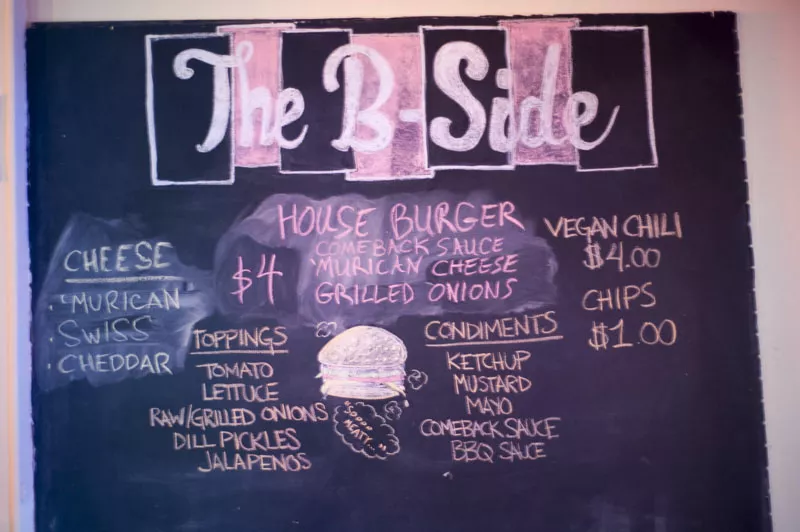 The B-Side
HOUSE BURGER
COMEBACK SAUCE
$4
'MURICAN CHEESE
GRILLED ONIONS
VEGAN CHILI
$4.00
CHIPS
$1.00
CHEESE
· 'MURICAN
· SWISS
· CHEDDAR
TOPPINGS
TOMATO
LETTUCE
RAW/GRILLED ONIONS
DILL PICKLES
JALAPENOS
"SOOOO
MEATY..."
CONDIMENTS
KETCHUP
MUSTARD
MAYO
COMEBACK SAUCE
BBQ SAUCE